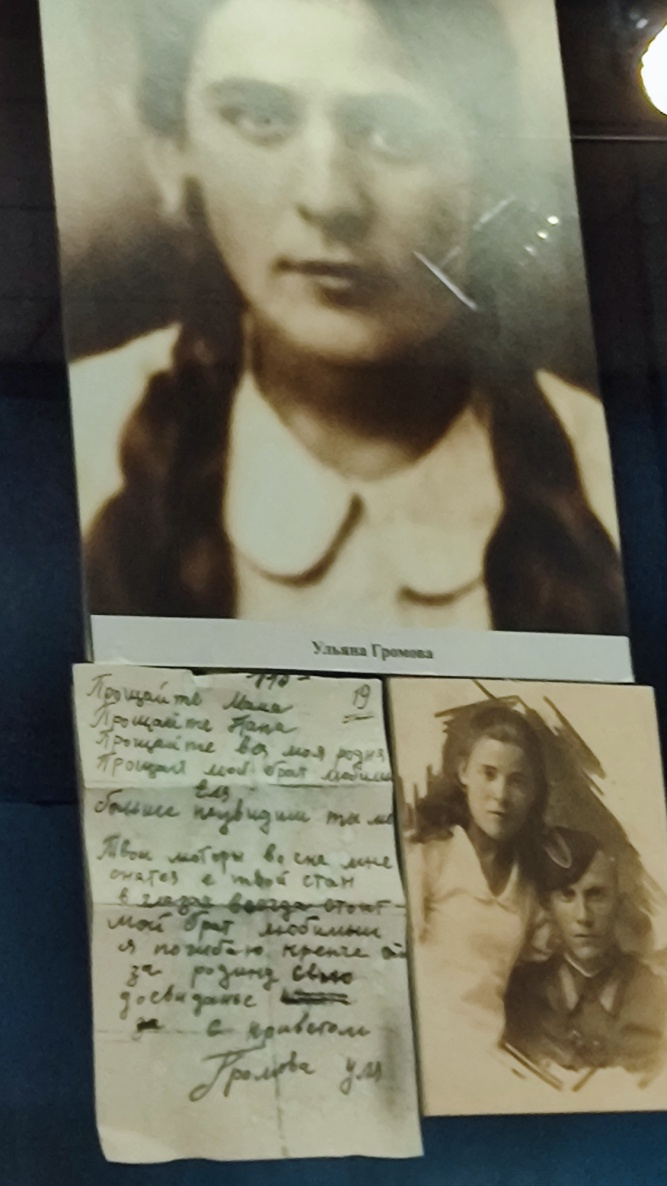 Ульяна Громова
19
Прощайте Мама
Прощайте Папа
Прощайте вся моя родня
Прощай мой брат любимый
Еля
больше неувидиш ты ме
Твои моторы во сне мне
снятся в твой стан
в глазах всегда стоит
мой брат любимый
я погибаю крепче
за родину свою
досвиданье
с приветом
Громова Уля